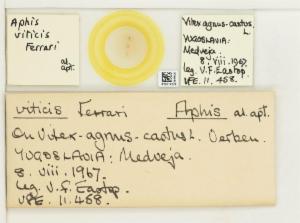 Aphis
viticis
Ferrari
al.
apt.
Vitex agnus-castus
L.
YUGOSLAVIA:
Medveja
8.viii.1967.
leg. V.F. Eastop.
VFE. 11,468.
viticis Ferrari Aphis al. apt.
On Vitex-agnus-castus L. Verben.
YUGOSLAVIA: Medveja.
8. viii. 1967.
leg. V.F. Eastop.
VFE. 11,468.